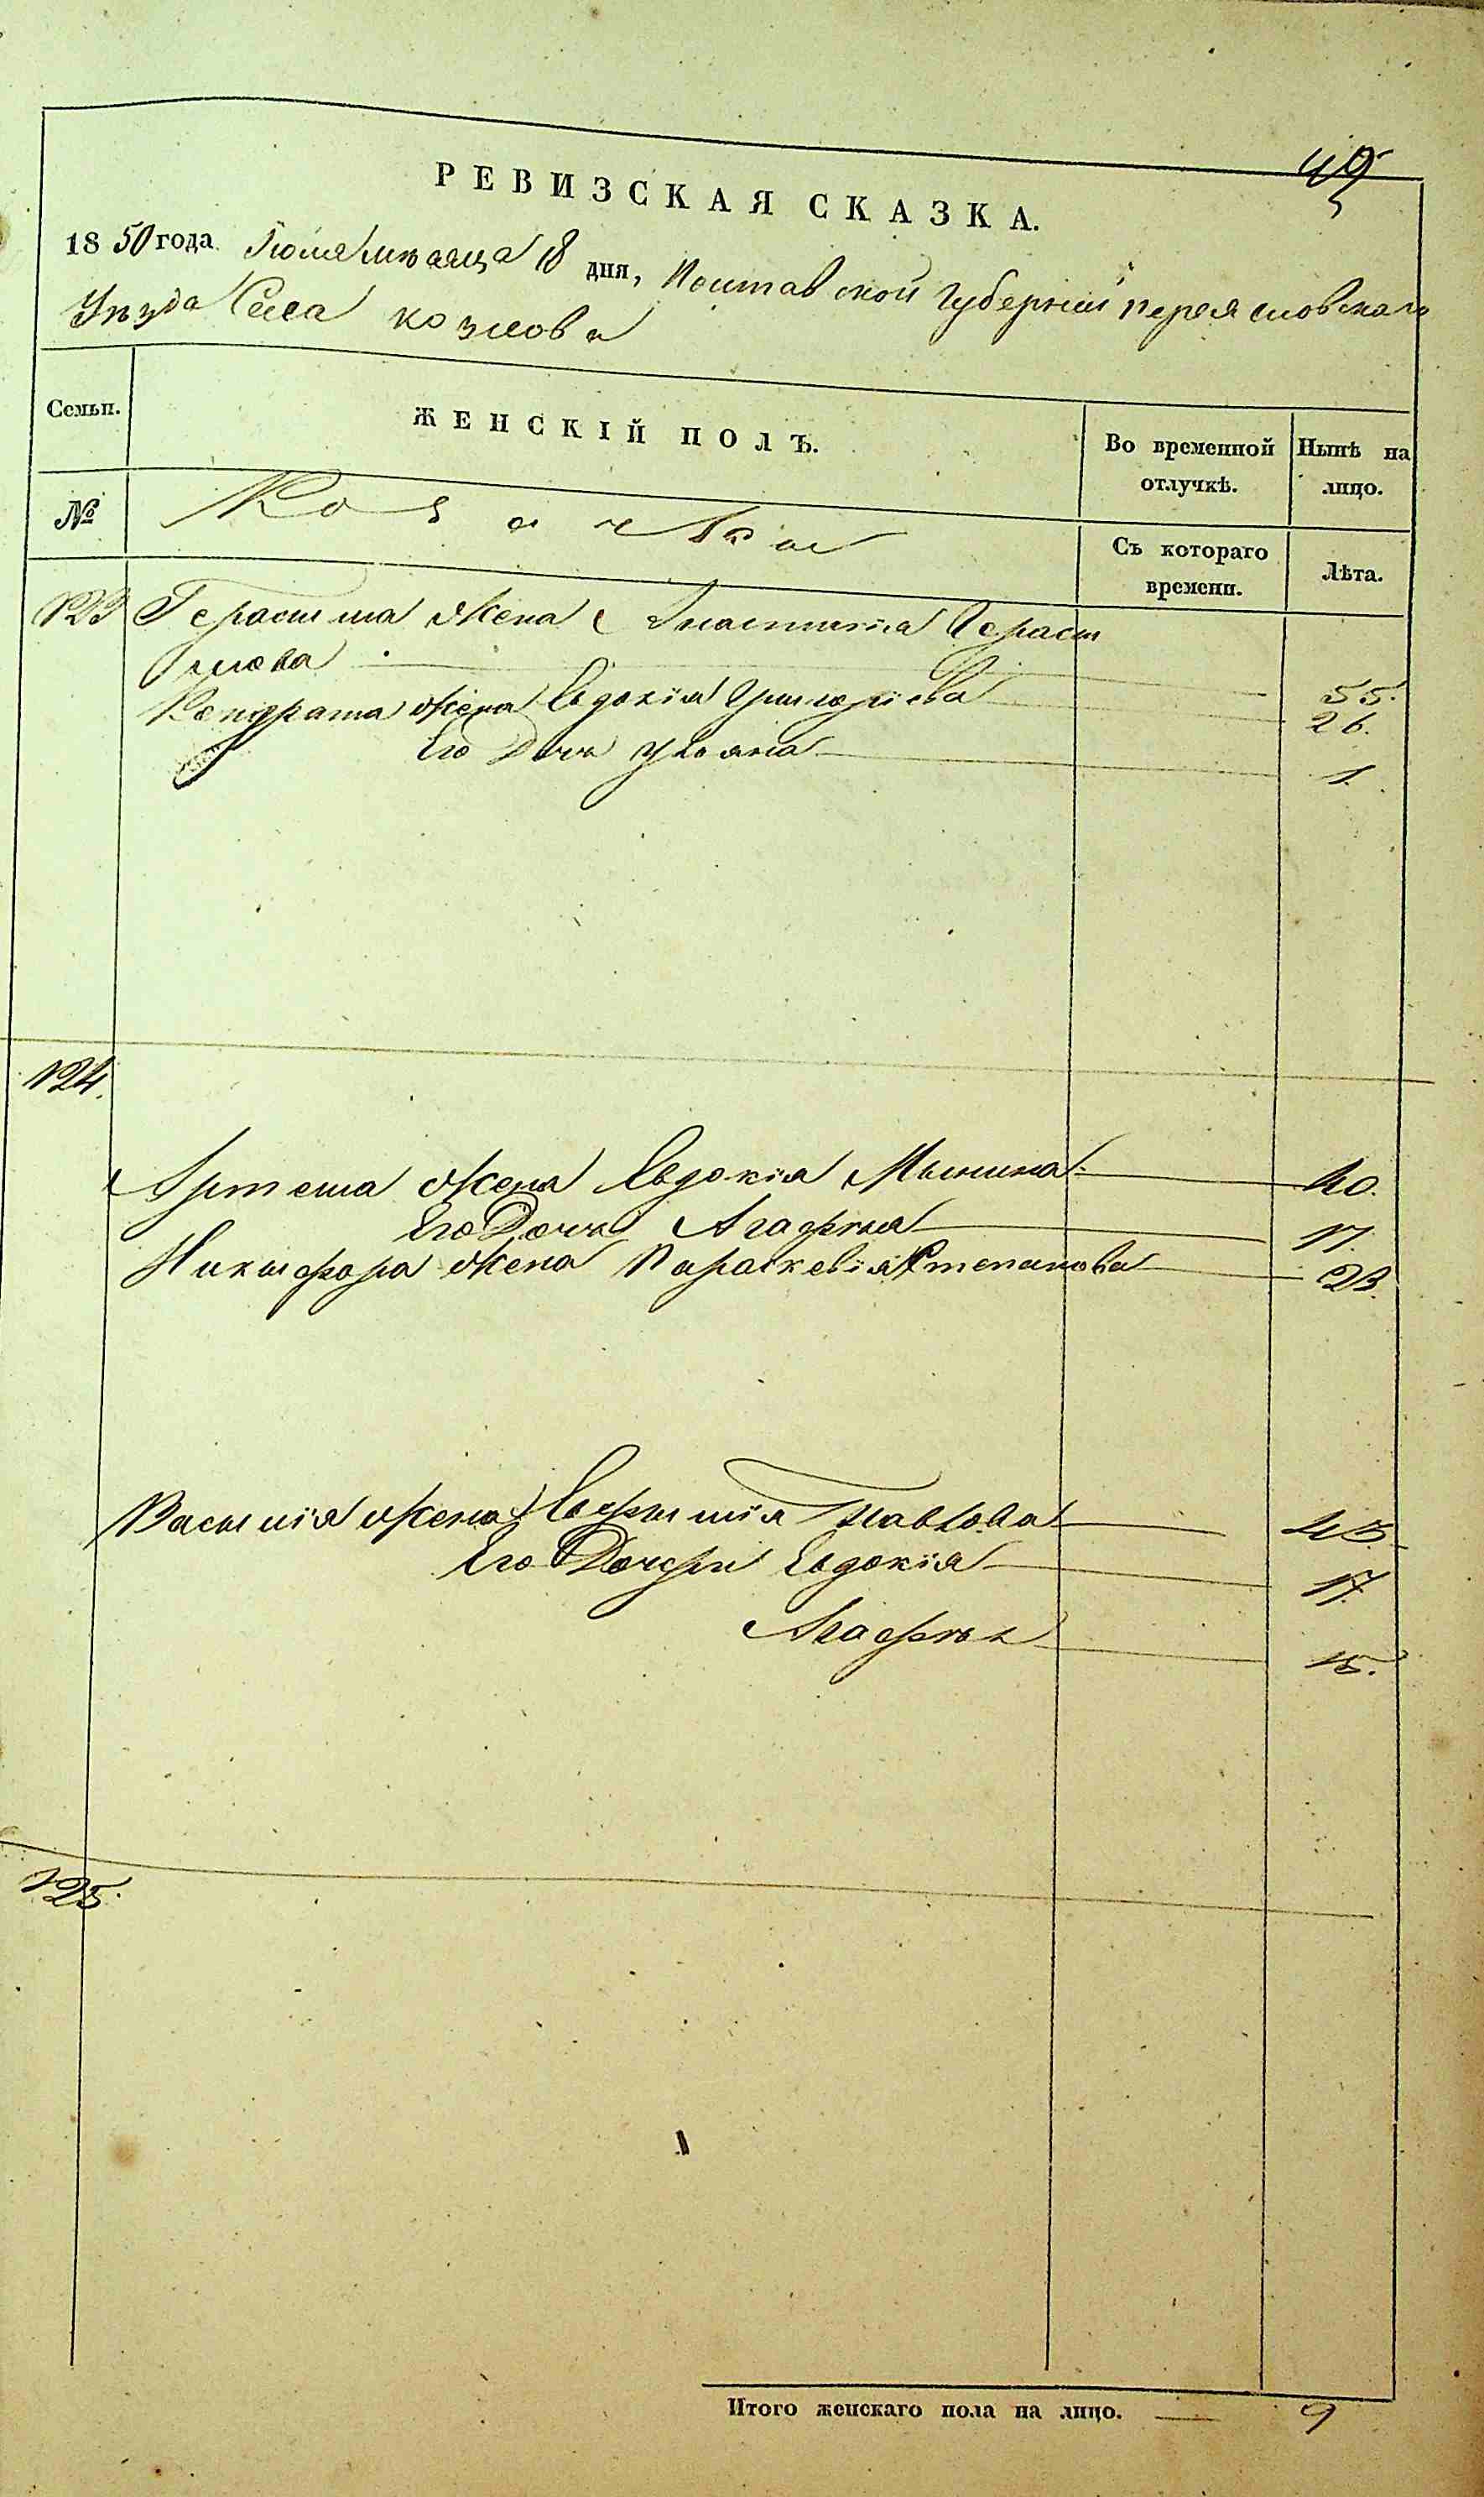 49
РЕВИЗСКАЯ СКАЗКА.
1850 года Іюля мѣсяца 18 дня, Полтавской губерніи переясловскаго
Уѣзда Села козлова
Семьи. ЖЕНСКІЙ ПОЛЪ. Во временной отлучкѣ. Нынѣ на лицо.
№ Козачки Съ котораго времени. Лѣта.
123 Герасима жена Анастасія Гераси
мова 55.
Кондрата жена Евдокія Григоріева 26.
Его Дочь Ульяна 1.
124.
Артема жена Евдокія Минина 40.
Его Дочь Агафия 17.
Никифора жена Параскевія Степанова 23.
Василія жена Евфимія Павлова 45
Его Дочери Евдокія 17.
Агафия 15.
125.
Итого женскаго пола на лицо. 9